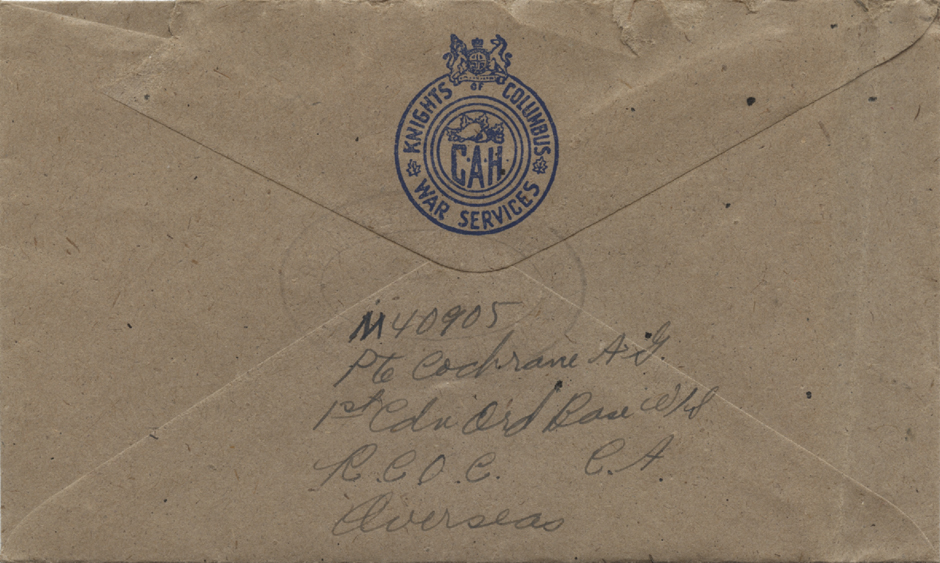 KNIGHTS OF COLUMBUS
C.A.H.
WAR SERVICES
M40905
Pte Cochrane A.G.
1st Cdn Ord Base W/S
R.C.O.C. C.A
Overseas